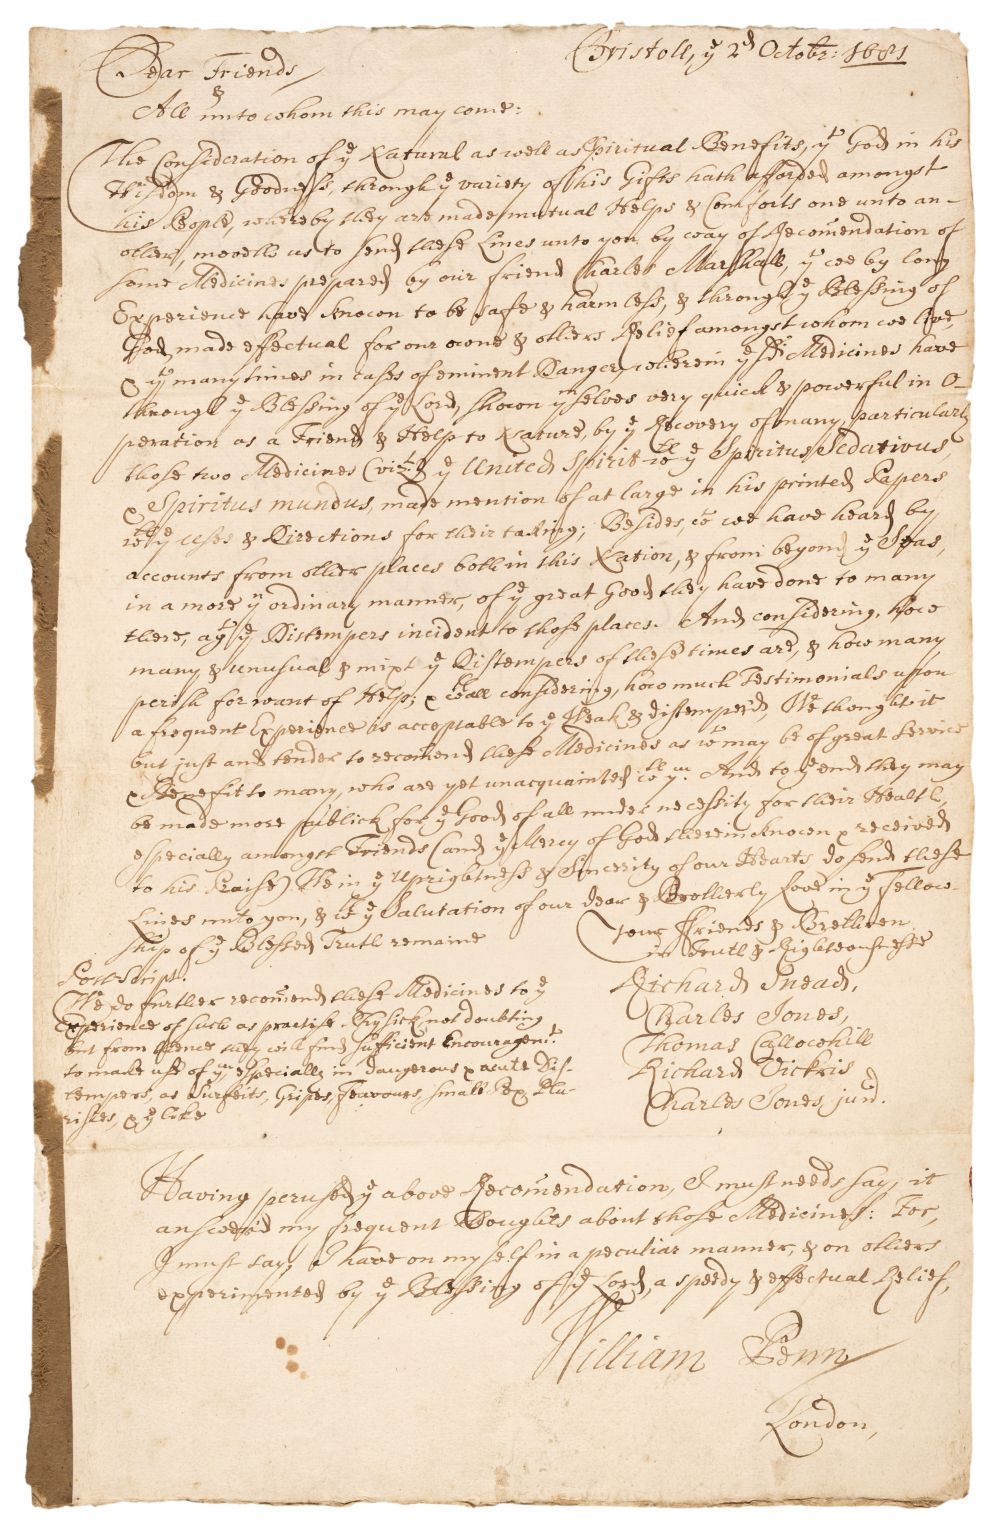 Bristoll, yͤ 2ᵈ Octobr: 1681
Dear Friends
&
All unto whom this may come:
The Consideration of yͤ Natural as well as Spiritual Benefits, yͭ God in his
Wisdom & Goodness, through yͤ variety of his Gifts hath afforded amongst
his People, whereby they are made mutual Helps & Comforts one unto an-
other, moveth us to send these Lines unto you by way of Recom̄endation of
some Medicines prepared by our friend Charles Marshall, yͭ we by long
Experience have known to be safe & harmless, & through yͤ Blessing of
God, made effectual for our owne & others Relief amongst whom we live,
& yͭ many times in cases of eminent Danger, wherein yͤ sᵈ Medicines have
through yͤ Blessing of yͤ Lord, shown yͫselves very quick & powerful in O-
peration as a Friend & Help to Nature, by yͤ Recovery of many, particularly
those two Medicines (vizͭ:) yͤ United Spirit wͭʰ yͤ Spiritus Sedativus,
& Spiritus mundus, made mention of at large in his printed Papers
wͭʰ yͤ uses & Directions for their taking; Besides, wͨ we have heard by
accounts from other places both in this Nation, & from beyond yͤ Seas,
in a more yͫ ordinary manner, of yͤ great Good they have done to many
there, agͭ yͤ Distempers incident to those places. And considering, how
many & unusual & mixt yͤ Distempers of these times are, & how many
perish for want of Help; & wͭʰall considering, how much Testimonials upon
a frequent Experience is acceptable to yͤ Weak & distemper'd, We thought it
but just and tender to recom̄end these Medicines as wͨ may be of great Service
& Benefit to many, who are yet unacquainted wͭʰ yͫ. And to yͤ end they may
be made more publick for yͤ Good of all under necessity for their Health,
especially amongst Friends (and yͤ Mercy of God therein known & received
to his Praise) We in yͤ Uprightness & Sincerity of our Hearts do send these
Lines unto you, & wͭʰ yͤ Salutation of our dear & Brotherly Love in yͤ fellow-
ship of yͤ Blessed Truth remaine
Your ffriends & Brethren
in Truth & Righteousness
Richard Snead,
Charles Jones,
Thomas Callowhill
Richard Vickris
Charles Jones, junͬ.
Post-Script.
We do further recom̄end these Medicines to yͤ
Experience of such as practise Physick not doubting
but from thence they will find sufficient Encouragemͭ.
to make use of yͫ especially in dangerous & acute Dis-
tempers, as Surfeits, Gripes, Feavours, small Pox, Plu-
risies, & yͤ like
Having perused yͤ above Recom̄endation, I must needs say, it
answer'd my frequent Thoughts about those Medicines: For,
I must say, I have on my self in a peculiar manner, & on others
experimented by yͤ Blessing of yͤ Lord, a speedy & effectual Relief,
William Penn
London,